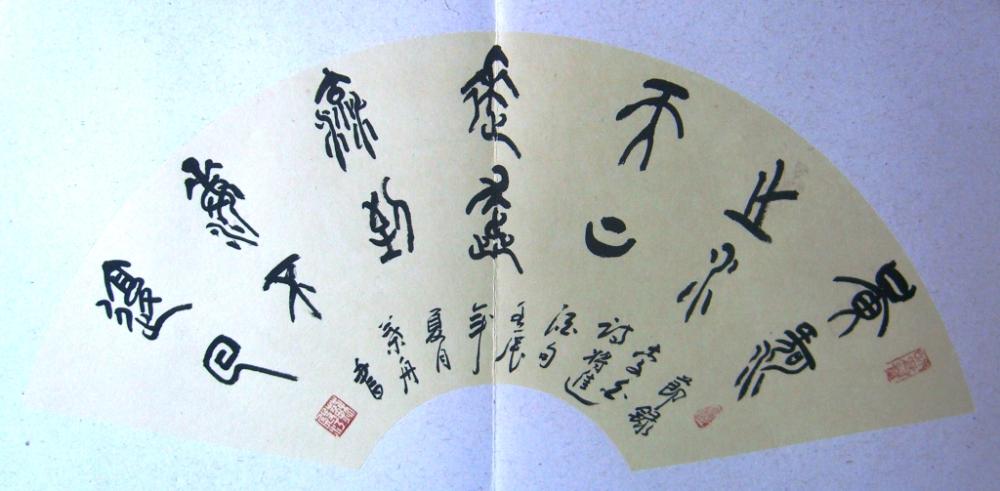 黃河
之水
天上
來奔
流到
海不
復回
節錄
李白
詩將進
酒句
壬辰
年
夏月
舟
書